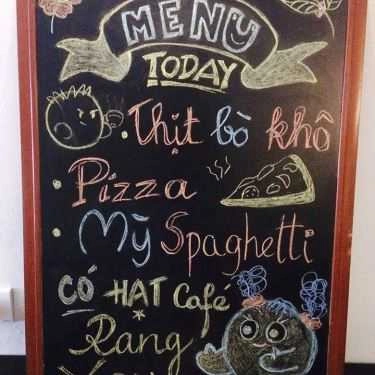 MENU
TODAY
Thịt bò khô
Pizza
Mỳ Spaghetti
CÓ HẠT Café
Rang